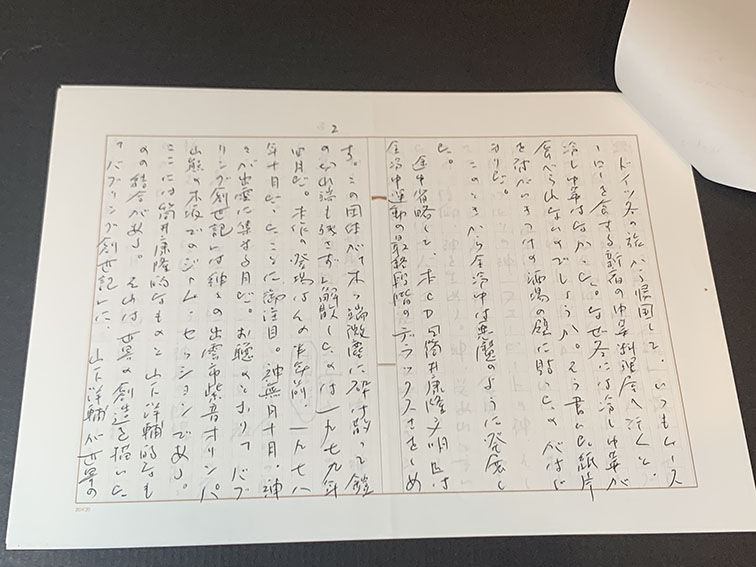 2
ドイツ冬の旅から帰国して、いつもムース
ーローを食する新宿の中華料理屋へ行くと、
冷し中華はなかった。なぜ冬には冷し中華が
食べられないのでしょうか。そう書いた紙片
を行きつけの酒場の壁に貼ったのがはじ
まりだ。
このときから全冷中は悪魔のように発展し
た。
途中省略して、本CD「筒井康隆文明」は
全冷中運動の最終段階のデラックスさをしめ
す。この団体が木っ端微塵に砕け散って鐙
も残さずに解散したのは一九七九年
四月だ。本作の登場はその半年前、一九七八
年十月だったことに御注目。神無月十月、神
々が出雲に集する月だ。お聴きのとおり『バブ
リング創世記』とは神々の出雲市紫音オリンパ
山麓の でのジャム・セッションである。
ここには筒井康隆的なものと山下洋輔的なも
のの結合がある。それは世界の創造を描いた
『バブリング創世記』に、山下洋輔が世界の